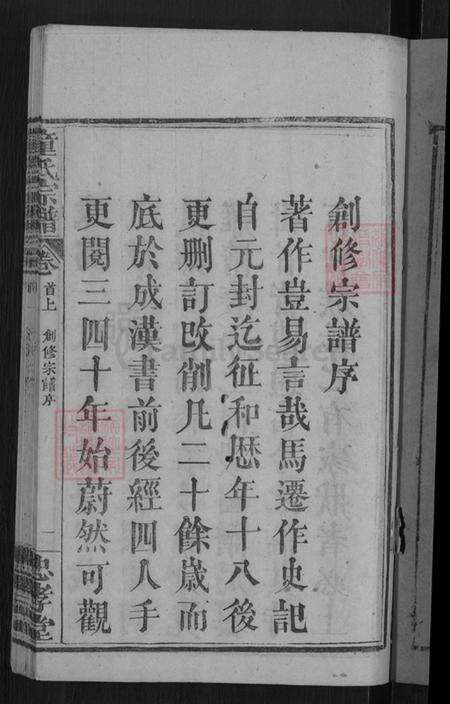 創修宗譜序
著作豈易言哉馬遷作史記
自元封迄征和厯年十八後
更删訂改削凡二十餘歲而
底於成漢書前後經四人手
更閱三四十年始蔚然可觀
童氏宗譜
卷
首上
創修宗譜序
一
忠孝堂